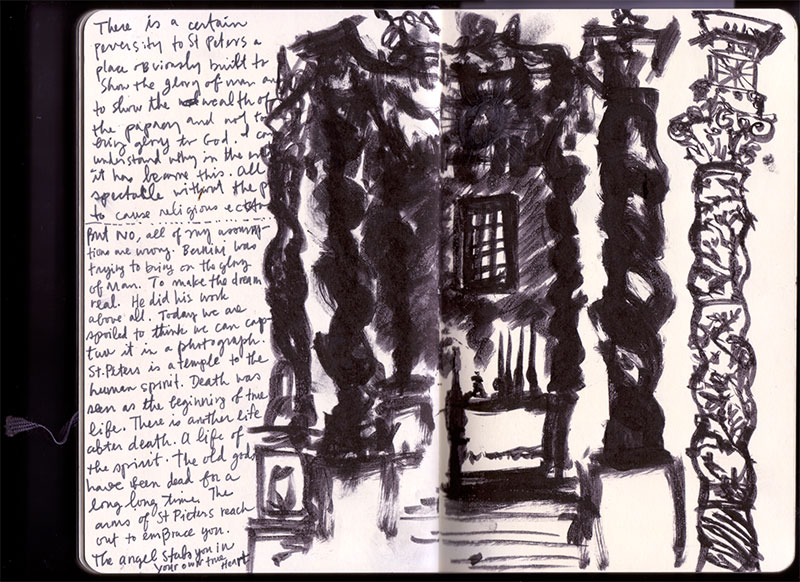 There is a certain
perversity to St Peters a
place obviously built to
Show the glory of man an
to show the wealth of
the papacy and not to
bring glory to God. I can
understand why in the
it has become this. All
spectable without the p
to cause religious ecsta
But NO, all of my assump-
tions are wrong. Bernini was
trying to bring on the glory
of Man. To make the dream
real. He did his work
above all. Today we are
spoiled to think we can cap-
ture it in a photograph.
St. Peters is a temple to the
human spirit. Death was
seen as the beginning of true
life. There is another life
after death. A life of
the spirit. The old gods
have been dead for a
long long time. The
arms of St Pieters reach
out to embrace you.
The angel stabs you in
your own true Heart